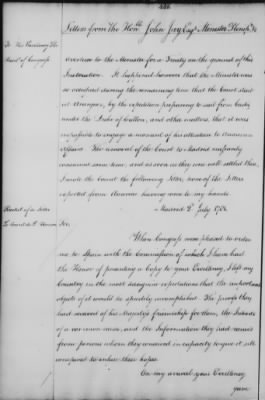 Letters from The Hon.ble John Jay Esq.r Minister Plenip.y &c
To His Excellency The
Presid.t of Congress.
overview to the Minister for a Treaty on the ground of this
Instruction. It happened however that the Minister was
so occupied during the remaining time that the Court staid
at Aranjues, by the expedition preparing to sail from Cadiz
under the Duke of Crillon, and other matters, that it was
impossible to engage a moment of his attention to American
affairs. The removal of the Court to Madrid unfairly
consumed some time, and as soon as they were well settled there,
I wrote the Count the following letter, none of the Letters
expected from America having come to my hands.
Madrid 2.d July 1781
Recital of a Letter
To Count de F. Blanca
Sir.
When Congress were pleased to order
me to Spain with the Commission of which I have had
the Honor of presenting a Copy to your Excellency, I left my
Country in the most sanguine expectations that the important
objects of it would be speedily accomplished. The proofs they
had received of his Majesty's friendship for them, the Interests
of a common cause, and the Information they had received
from persons whom they conceived in capacity to give it, all
conspired to infuse these hopes.
On my arrival your Excellency
gave